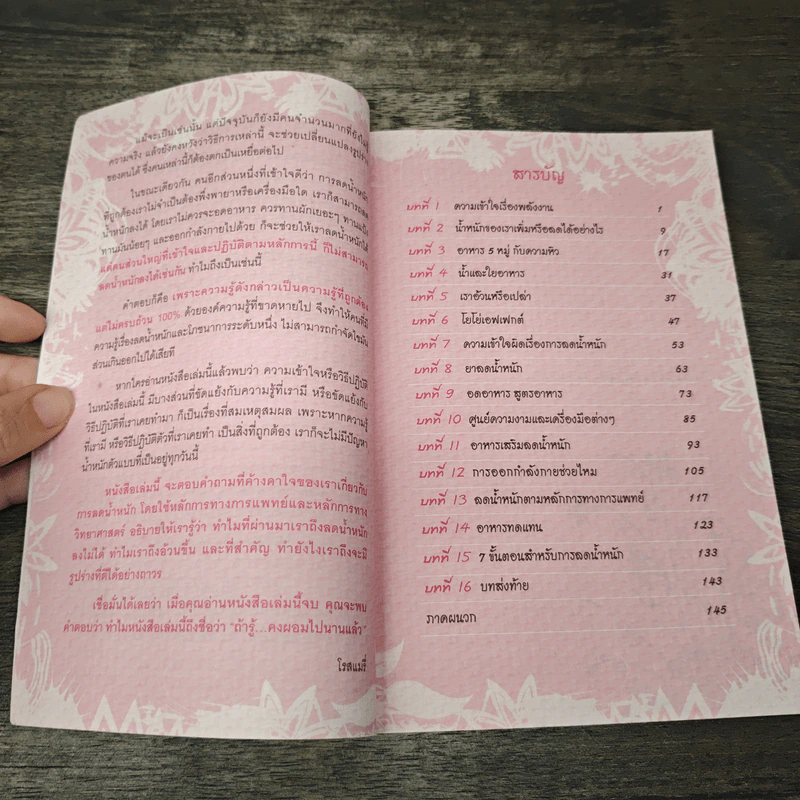 แม้จะเป็นเช่นนั้น แต่ปัจจุบันก็ยังมีคนจำนวนมากที่ยังไม่รู้
ความจริง แล้วยังคงหวังว่าวิธีการเหล่านี้ จะช่วยเปลี่ยนแปลงรูปร่าง
ของตนได้ ซึ่งคนเหล่านี้ก็ต้องตกเป็นเหยื่อต่อไป
ในขณะเดียวกัน คนอีกส่วนหนึ่งที่เข้าใจดีว่า การลดน้ำหนัก
ที่ถูกต้องเราไม่จำเป็นต้องพึ่งพายาหรือเครื่องมือใด เราก็สามารถลด
น้ำหนักลงได้ โดยเราไม่ควรจะอดอาหาร ควรทานผักเยอะๆ ทานแป้ง
ทานมันน้อยๆ และออกกำลังกายไปด้วย ก็จะช่วยให้เราลดน้ำหนักได้
แต่คนส่วนใหญ่ที่เข้าใจและปฏิบัติตามหลักการนี้ ก็ไม่สามารถ
ลดน้ำหนักลงได้เช่นกัน ทำไมถึงเป็นเช่นนี้
คำตอบก็คือ เพราะความรู้ดังกล่าวเป็นความรู้ที่ถูกต้อง
แต่ไม่ครบถ้วน 100% ด้วยองค์ความรู้ที่ขาดหายไป จึงทำให้คนที่มี
ความรู้เรื่องลดน้ำหนักและโภชนาการระดับหนึ่ง ไม่สามารถกำจัดไขมัน
ส่วนเกินออกไปได้เสียที
หากใครอ่านหนังสือเล่มนี้แล้วพบว่า ความเข้าใจหรือวิธีปฏิบัติ
ในหนังสือเล่มนี้ มีบางส่วนที่ขัดแย้งกับความรู้ที่เรามี หรือขัดแย้งกับ
วิธีปฏิบัติที่เราเคยทำมา ก็เป็นเรื่องที่สมเหตุสมผล เพราะหากความรู้
ที่เรามี หรือวิธีปฏิบัติตัวที่เราเคยทำ เป็นสิ่งที่ถูกต้อง เราก็จะไม่มีปัญหา
น้ำหนักตัวแบบที่เป็นอยู่ทุกวันนี้
หนังสือเล่มนี้ จะตอบคำถามที่ค้างคาใจของเราเกี่ยวกับ
การลดน้ำหนัก โดยใช้หลักการทางการแพทย์และหลักการทาง
วิทยาศาสตร์ อธิบายให้เรารู้ว่า ทำไมที่ผ่านมาเราถึงลดน้ำหนัก
ลงไม่ได้ ทำไมเราถึงอ้วนขึ้น และที่สำคัญ ทำยังไงเราถึงจะมี
รูปร่างที่ดีได้อย่างถาวร
เชื่อมั่นได้เลยว่า เมื่อคุณอ่านหนังสือเล่มนี้จบ คุณจะพบ
คำตอบว่า ทำไมหนังสือเล่มนี้ถึงชื่อว่า "ถ้ารู้...คงผอมไปนานแล้ว"
โรสแมรี่
สารบัญ
บทที่ 1 ความเข้าใจเรื่องพลังงาน 1
บทที่ 2 น้ำหนักของเราเพิ่มหรือลดได้อย่างไร 9
บทที่ 3 อาหาร 5 หมู่ กับความหิว 17
บทที่ 4 น้ำและใยอาหาร 31
บทที่ 5 เราอ้วนหรือเปล่า 37
บทที่ 6 โยโย่เอฟเฟกต์ 47
บทที่ 7 ความเข้าใจผิดเรื่องการลดน้ำหนัก 53
บทที่ 8 ยาลดน้ำหนัก 63
บทที่ 9 อดอาหาร สูตรอาหาร 73
บทที่ 10 ศูนย์ความงามและเครื่องมือต่างๆ 85
บทที่ 11 อาหารเสริมลดน้ำหนัก 93
บทที่ 12 การออกกำลังกายช่วยไหม 105
บทที่ 13 ลดน้ำหนักตามหลักการทางการแพทย์ 117
บทที่ 14 อาหารทดแทน 123
บทที่ 15 7 ขั้นตอนสำหรับการลดน้ำหนัก 133
บทที่ 16 บทส่งท้าย 143
ภาคผนวก 145